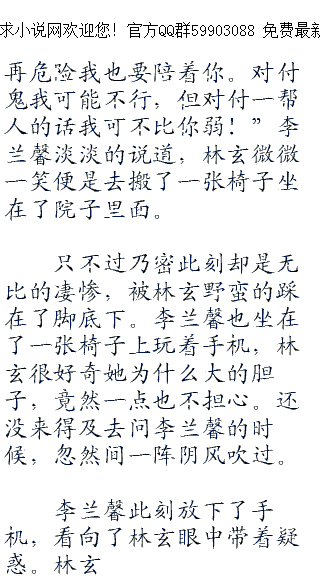 求小说网欢迎您！官方QQ群59903088 免费最新
再危险我也要陪着你。对付
鬼我可能不行，但对付一帮
人的话我可不比你弱！”李
兰馨淡淡的说道，林玄微微
一笑便是去搬了一张椅子坐
在了院子里面。
只不过乃密此刻却是无
比的凄惨，被林玄野蛮的踩
在了脚底下。李兰馨也坐在
了一张椅子上玩着手机，林
玄很好奇她为什么大的胆
子，竟然一点也不担心。还
没来得及去问李兰馨的时
候，忽然间一阵阴风吹过。
李兰馨此刻放下了手
机，看向了林玄眼中带着疑
惑。林玄